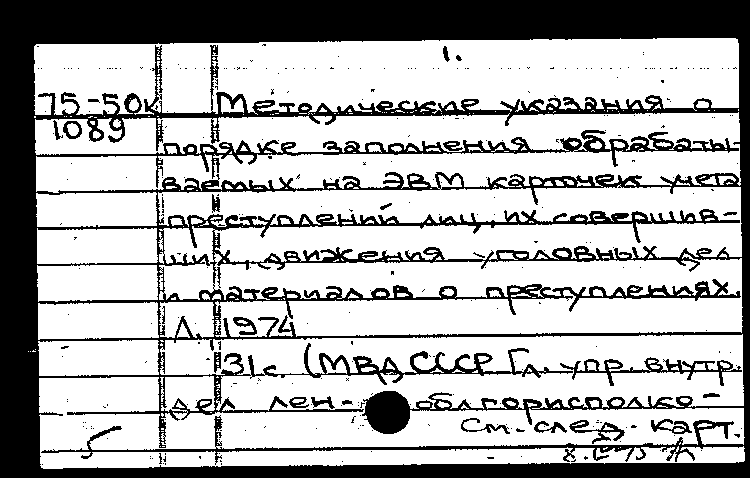 1.
75-50к Методические указания о
1089
порядке заполнения обрабаты-
ваемых на ЭВМ карточек учета
преступлений лиц, их совершив-
ших, движения уголовных дел
и материалов о преступлениях.
Л. 1974
31 с. (МВД СССР Гл. упр. внутр.
дел лен- облгорисполко-
См. след. карт.
5